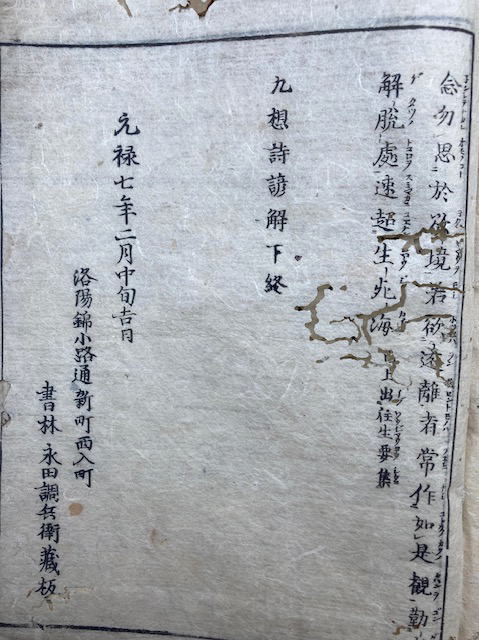 念勿思於欲境若欲遠離者常作如是観勤
解脱處速超生死海 上出往生要集
九想詩諺解下終
元禄七年二月中旬吉日
洛陽錦小路通新町西入町
書林 永田調兵衛蔵板